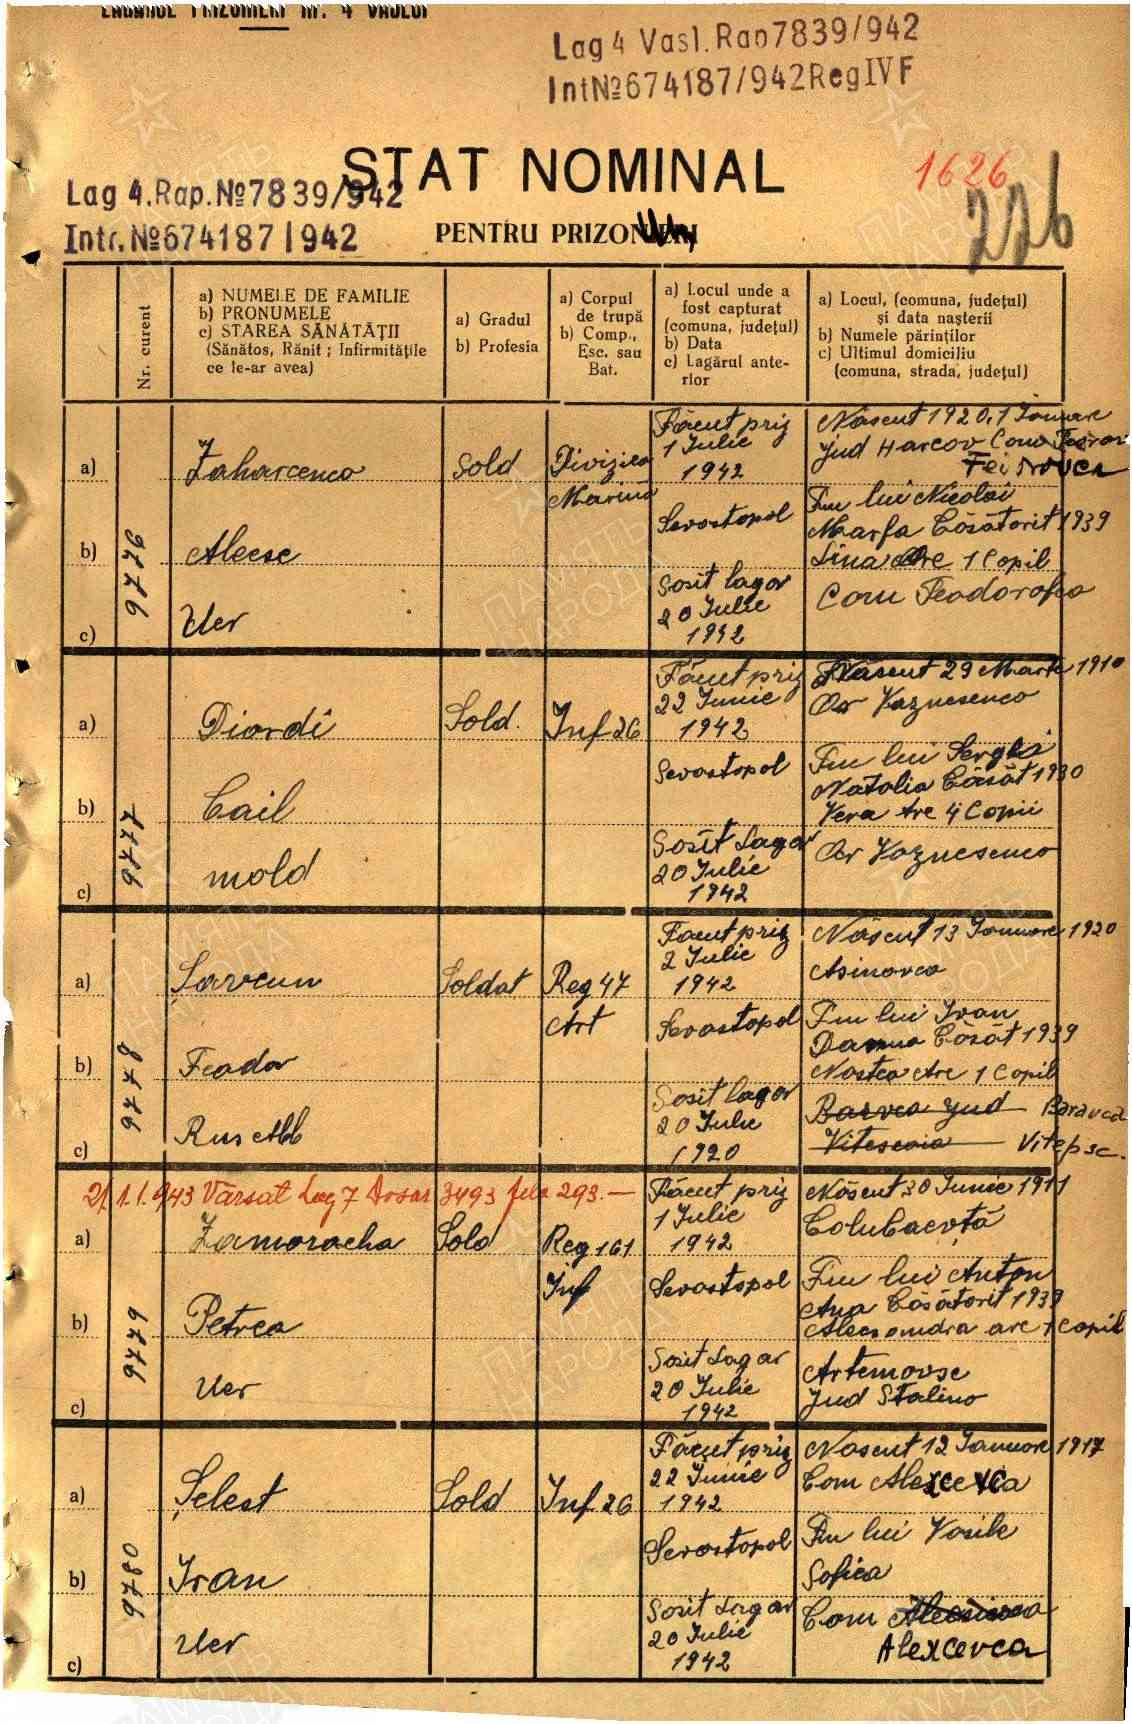 LAGĂRUL PRIZONIERI Nr. 4 VASLUI
Lag 4 Vasl. Rap 7839/942
Int№674187/942RegIVF
STAT NOMINAL
1626
226
Lag 4.Rap.№7839/942
Intr.№674187/942
PENTRU PRIZONIERI
Nr. curent
a) NUMELE DE FAMILIE
b) PRONUMELE
c) STAREA SĂNĂTĂȚII
(Sănătos, Rănit ; Infirmitățile
ce le-ar avea)
a) Gradul
b) Profesia
a) Corpul
de trupă
b) Comp.,
Esc. sau
Bat.
a) Locul unde a
fost capturat
(comuna, județul)
b) Data
c) Lagărul ante-
rior
a) Locul, (comuna, județul)
și data nașterii
b) Numele părinților
c) Ultimul domiciliu
(comuna, strada, județul)
a)
b)
c)
9776
Zaharcenco
Alecse
Ucr
Sold
Divizia
Marină
Făcut priz
1 Iulie
1942
Sevostopol
Sosit lagar
20 Iulie
1942
Născut 1920, 1 Ianuare
Jud Harcov Com
Fiu lui Nicolai
Marfa Căsătorit 1939
Lina Are 1 Copil
Com
a)
b)
c)
9777
Diordi
Cail
mold
Sold.
Inf 26
Făcut priz
22 Iunie
1942
Sevostopol
Sosit Lagar
20 Iulie
1942
Născut 29 Marte 1910
Or Voznesenco
Fiu lui Serghi
Natalia Căsăt 1930
Vera Are 4 Copii
Or Voznesenco
a)
b)
c)
9778
Șavcun
Feador
Rus Alb
Soldat
Reg 47
Art
Facut priz
2 Iulie
1942
Sevostopol
Sosit lagar
20 Iulie
1920
Născut 13 Ianuare 1920
Asinovca
Fiu lui Ivan
Căsăt 1939
Nastea Are 1 Copil
Barvca Jud Baravca
Vitepsc.
21.1.943 Vărsat Lag 7 Dosar 3493 fila 293.—
a)
b)
c)
9779
Zamoracha
Petrea
Ucr
Sold
Reg 161
Inf
Făcut priz
1 Iulie
1942
Sevostopol
Sosit Lagar
20 Iulie
1942
Născut 30 Iunie 1911
Fiu lui Anton
Ana Căsătorit 1939
Alecsondra are 1 Copil
Artemovsc
Jud Stalino
a)
b)
c)
9780
Șelest
Ivan
Ucr
Sold
Inf 26
Făcut priz
22 Iunie
1942
Sevostopol
Sosit Lagar
20 Iulie
1942
Noscut 12 Ianuore 1917
Com Alexcevca
Fiu lui Vasile
Sofiea
Com
Alexcevca
ПАМЯТЬ
НАРОДА